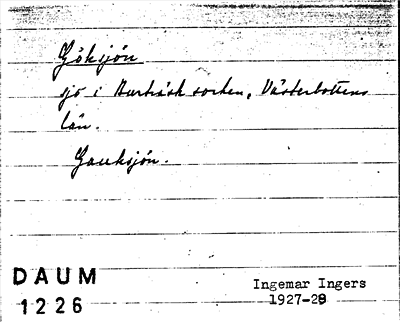 Göksjön
sjö i Burträsk socken, Västerbottens
län.
Gauksjön.
DAUM
1226
Ingemar Ingers
1927-29